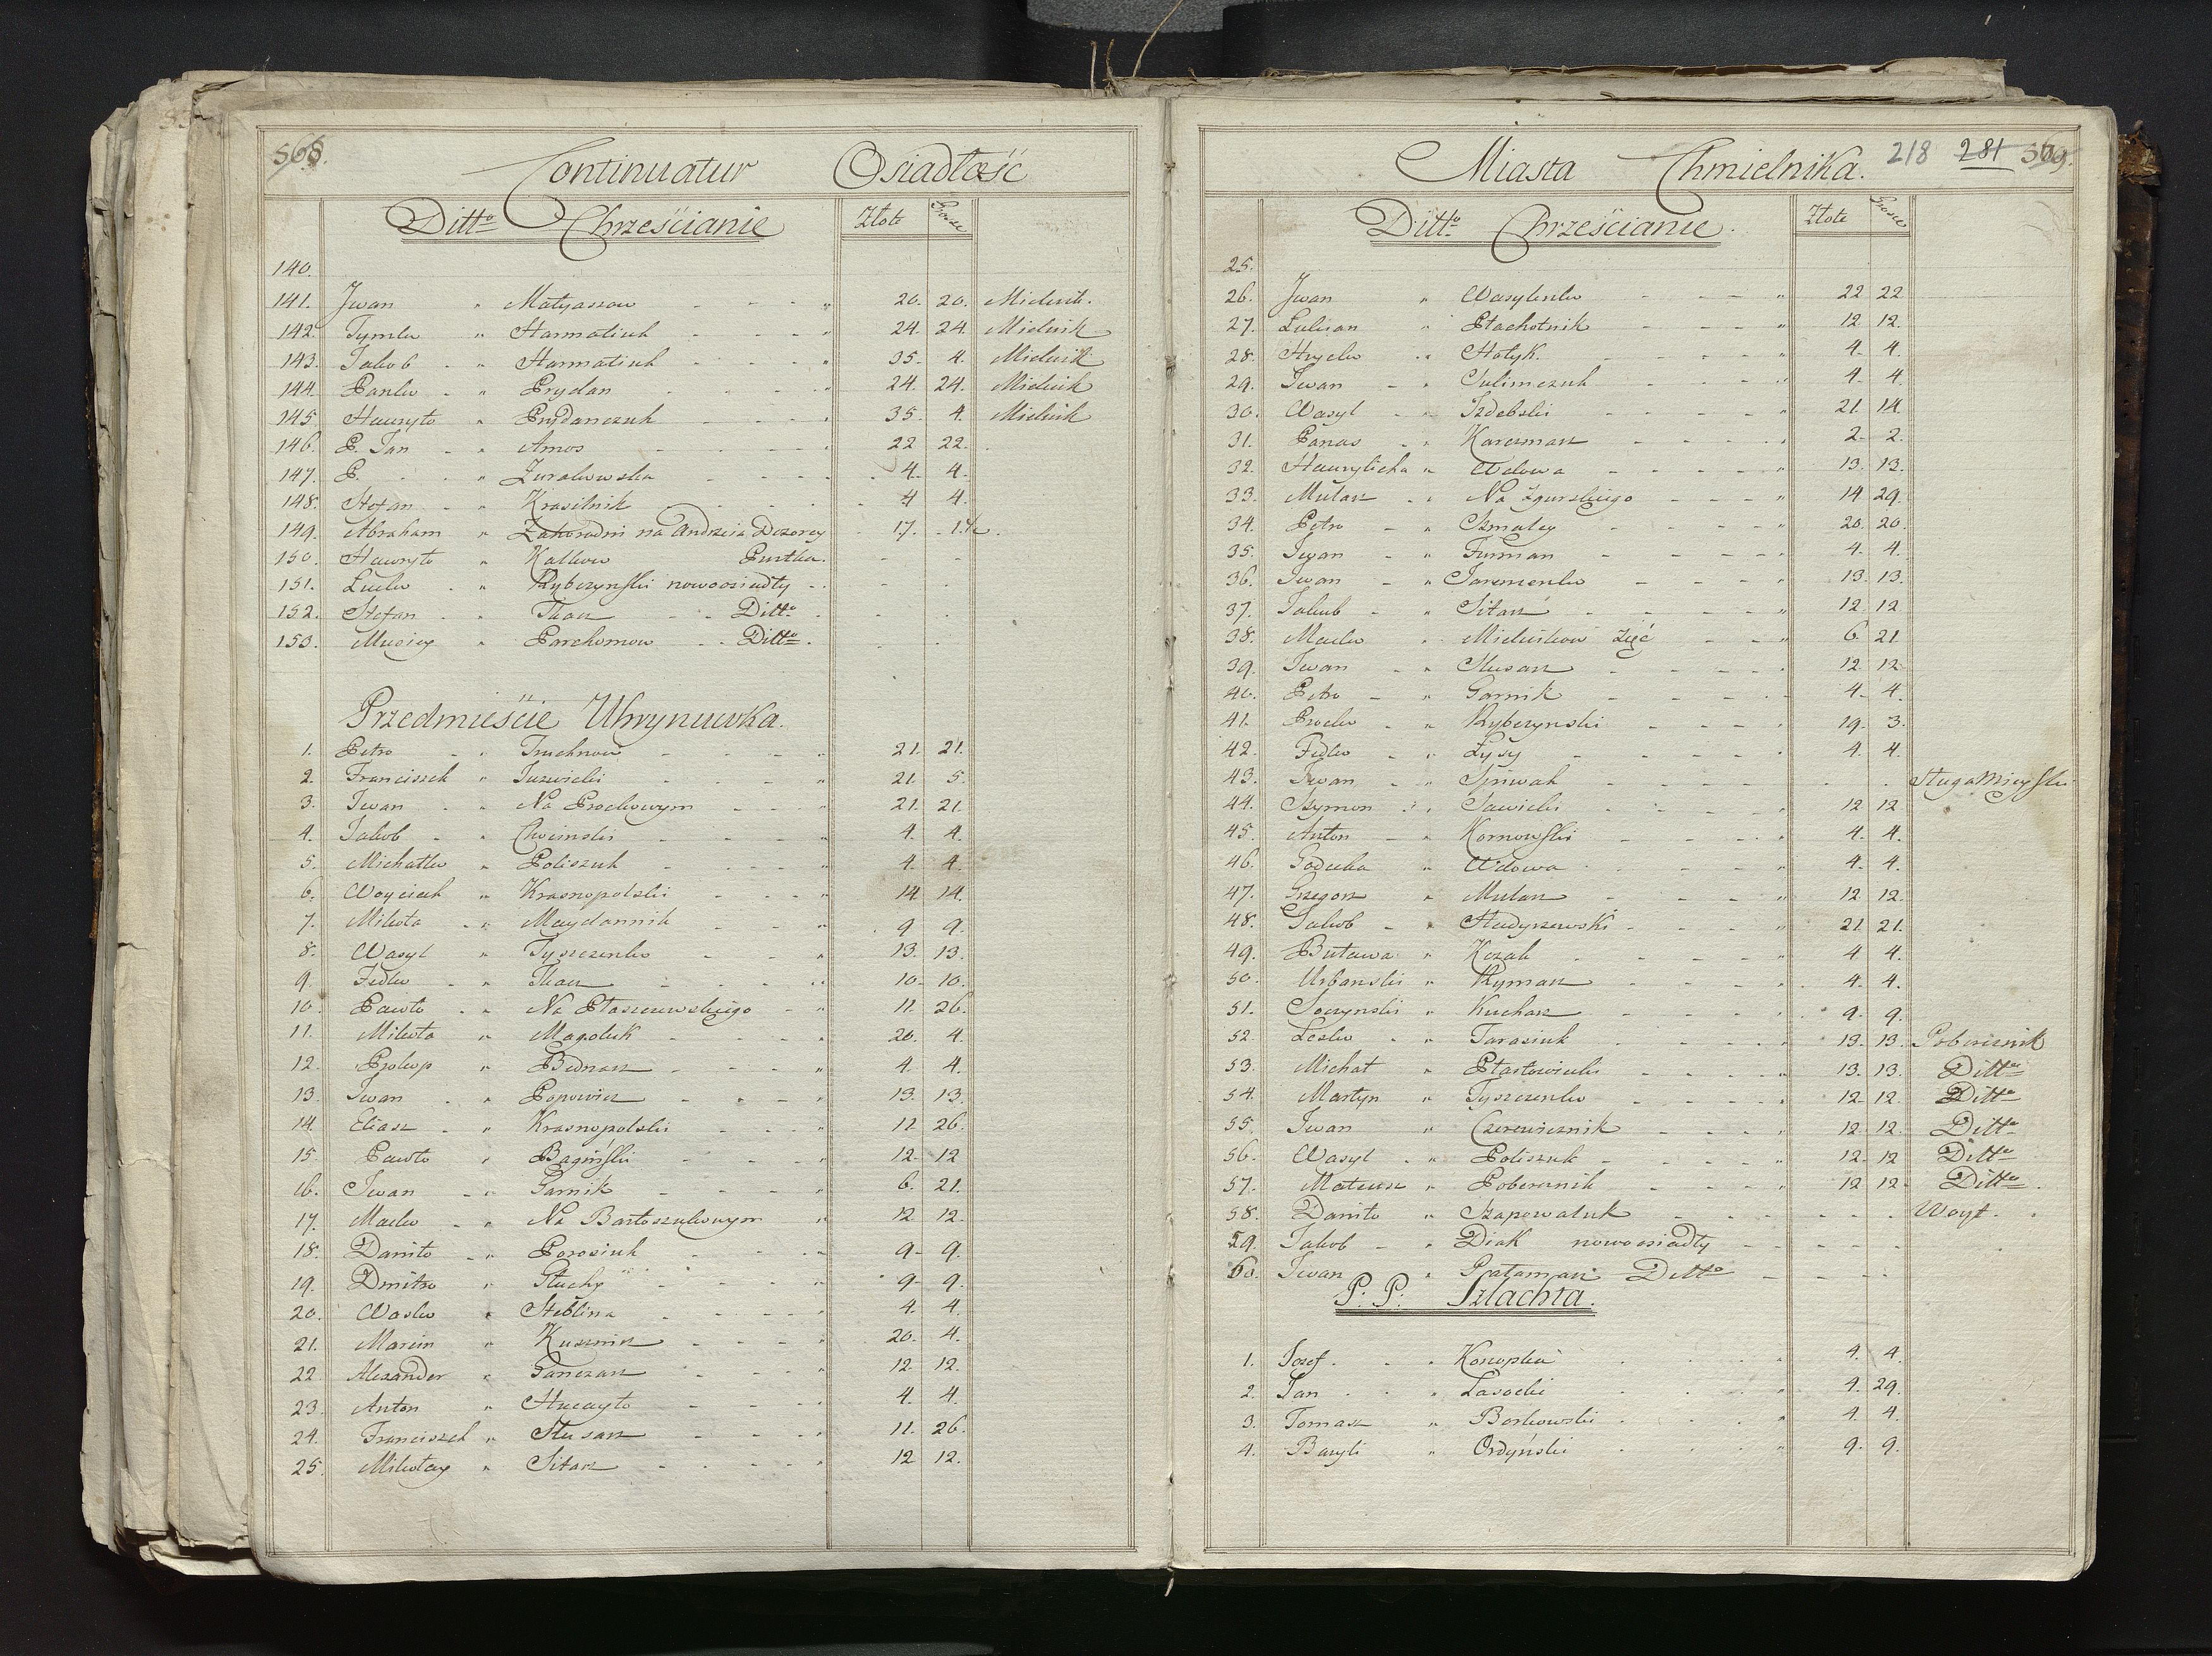 568.
Continuatur Osiadłość
Ditto Chrześcianie Złote Grosze
140.
141. Jwan " Matyaszow " 20. 20. Mielnik.
142. Tymko " Harmatiuk " 24. 24. Mielnik
143. Jakob " Harmatiuk " 35. 4. Mielnik
144. Panko " Prydan " 24. 24. Mielnik
145. Hawryło " Prydanczuk " 35. 4. Mielnik
146. P. Jan " Amos " 22 22.
147. P. " Zurakowska 4. 4.
148. Stefan " Krasilnik 4 4.
149. Abraham " Zahorodni na Andrzeia Dozorcy 17.
150. Hawryło " Kalkow Pustka.
151. Lucko " Rybczynski nowoosiadły
152. Stefan " Tkacz Ditto
153. Musiey " Parchomow Ditto
Przedmieście Uhrynuwka.
1. Petro " Truchnow " 21. 21.
2. Franciszek " Juzwicki " 21. 5.
3. Jwan " Na Prockowym " 21. 21
4. Jakob " Choinski " 4. 4.
5. Michałko " Poliszuk " 4. 4.
6. Woyciech " Krasnopolski " 14 14.
7. Mikoła " Maydannik " 9 9.
8. Wasyl " Tyszczenko " 13. 13.
9. Fedko " Tkacz " 10. 10.
10. Pawło " Na Ptaszewskiego " 11. 26.
11. Mikoła " Magoluk " 20. 4.
12. Prokop " Bednarz " 4. 4.
13. Jwan " Popowicz " 13. 13.
14. Eliasz " Krasnopolski " 12 26.
15. Pawło " Bagiński " 12. 12
16. Jwan " Garnik " 6. 21.
17. Macko " Na Bartoszukowym " 12 12.
18. Daniło " Porosiuk " 9. 9.
19. Dmitro " Głuchy " 9. 9.
20. Wasko " Steblina " 4. 4.
21. Marcin " Kusznirz " 20. 4.
22. Alexander " Ganczarz " 12 12.
23. Anton " " 4. 4.
24. Franciszek " Slusarz " 11. 26.
25. Mikołay " Sitarz " 12 12.
Miasta Chmielnika. 218 281 569.
Ditto Chrześcianie Złote Grosze
25.
26. Jwan " Wasylenko " 22 22
27. Lukian " Płachotnik " 12 12.
28. Hrycko " Hołyk. " 4. 4.
29. Jwan " Sulimczuk " 4. 4.
30. Wasyl " Jzdebski " 21. 14.
31. Panas " Karczmarz " 2. 2.
32. Hawrylicha " Wdowa " 13. 13.
33. Mularz " Na Zgurskiego " 14 29.
34. Petro " Szmaley " 20. 20.
35. Jwan " Furman " 4. 4.
36. Jwan " Jaremenko " 13. 13.
37. Jakub " Sitarz " 12 12
38. Macko " Mielnikow Zięć " 6. 21
39. Jwan " Slusarz " 12. 12
40. Petro " Garnik " 4. 4.
41. Procko " Rybczynski " 19. 3.
42. Fedko " Łysy " 4. 4.
43. Jwan " Spiwak Sługa Mieyski
44. Szymon " Sawicki " 12 12
45. Anton " Kornowski " 4. 4.
46. " Wdowa " 4. 4.
47. Grzegorz " Mularz " 12 12.
48. Jakob " Hadyszewski " 21. 21.
49. Buława " Kozak " 4 4.
50. Urbanski " Rymarz " 4. 4.
51. Soczynski " Kucharz " 9. 9.
52. Lesko " Tarasiuk " 13. 13. Pobereznik
53. Michał " " 13. 13. Ditto
54. Martyn " Tyszczenko " 12. 12. Ditto
55. Jwan " Czerewicznik " 12 12. Ditto
56. Wasyl " Poliszuk " 12. 12 Ditto
57. Mateusz " Pobereznik " 12 12. Ditto
58. Daniło " Szapowaluk Woyt.
59. Jakob " Diak nowoosiadły
60. Jwan " Ditto
P: P: Szlachta.
1. Jozef " Konopka " 4. 4.
2. Jan " Lasocki " 4. 29.
3. Tomasz " Borkowski " 4. 4.
4. Bazyli " Ordyński " 9. 9.